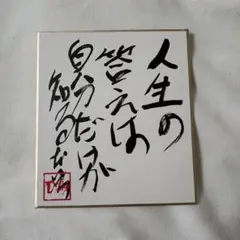 人生の
答えは
自分だけが
知る